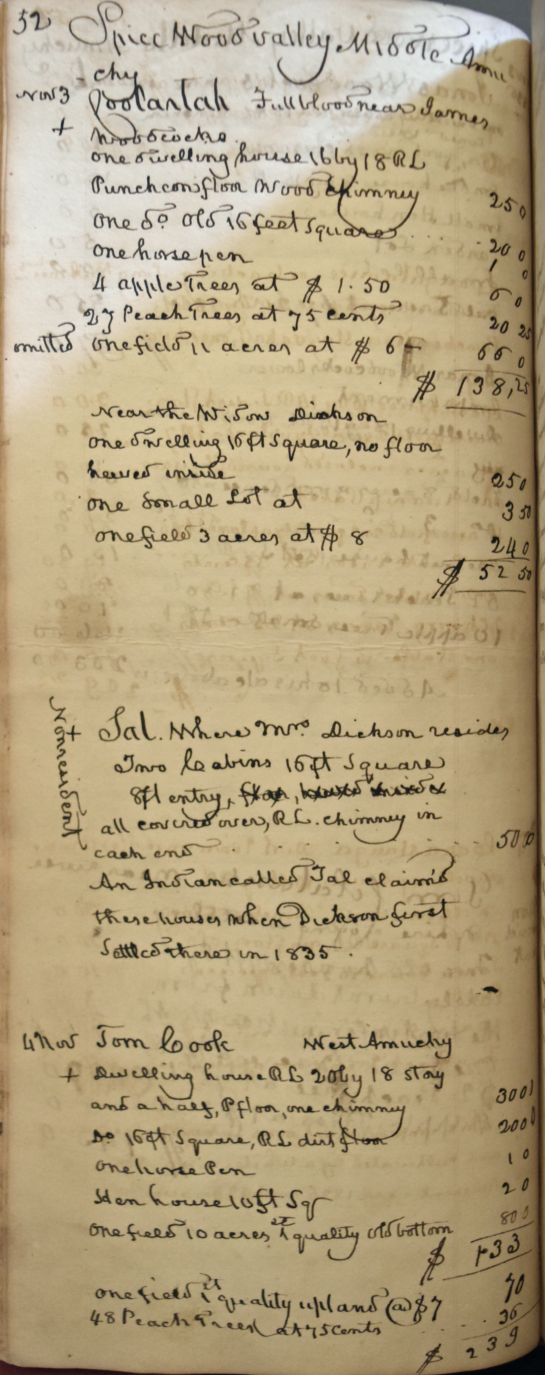 52 Spice Wood valley Middle Amu
chy
Nov 3 Full blood near James
+ Woodcocks
one dwelling house 16 by 18 RL
Puncheon floor Wood chimney 25 0
one do old 16 feet Square .. 20 0
one horse pen 1 0
4 apple Trees at $ 1.50 6 0
27 Peach Trees at 75 cents 20 25
omitted one field 11 acres at $ 6 - 66 0
$ 138,25
Near the Widow Dickson
one dwelling 16 ft Square, no floor
hewed inside 25 0
one Small Lot at 3 50
one field 3 acres at $ 8 24 0
$ 52 50
Nonresident
+ Sal. Where Mrs Dickson resides
Two Cabins 16 ft Square
8 ft entry,
all covered over, RL. chimney in
each end . . . . . 50 0
An Indian called Tal claim'd
these houses when Dickson first
Settled there in 1835.
4 Nov Tom Cook West Amuchy
+ Dwelling house RL 20 by 18 story
and a half, P floor, one chimney 30 0
Do 16 ft Square, RL dirt floor 20 0
one horse Pen 1 0
Hen house 10 ft Sq 2 0
one field 10 acres quality old bottom 80 0
$ 133
one field quality upland @ $7 70
48 Peach Trees at 75 Cents .. 36
$ 239